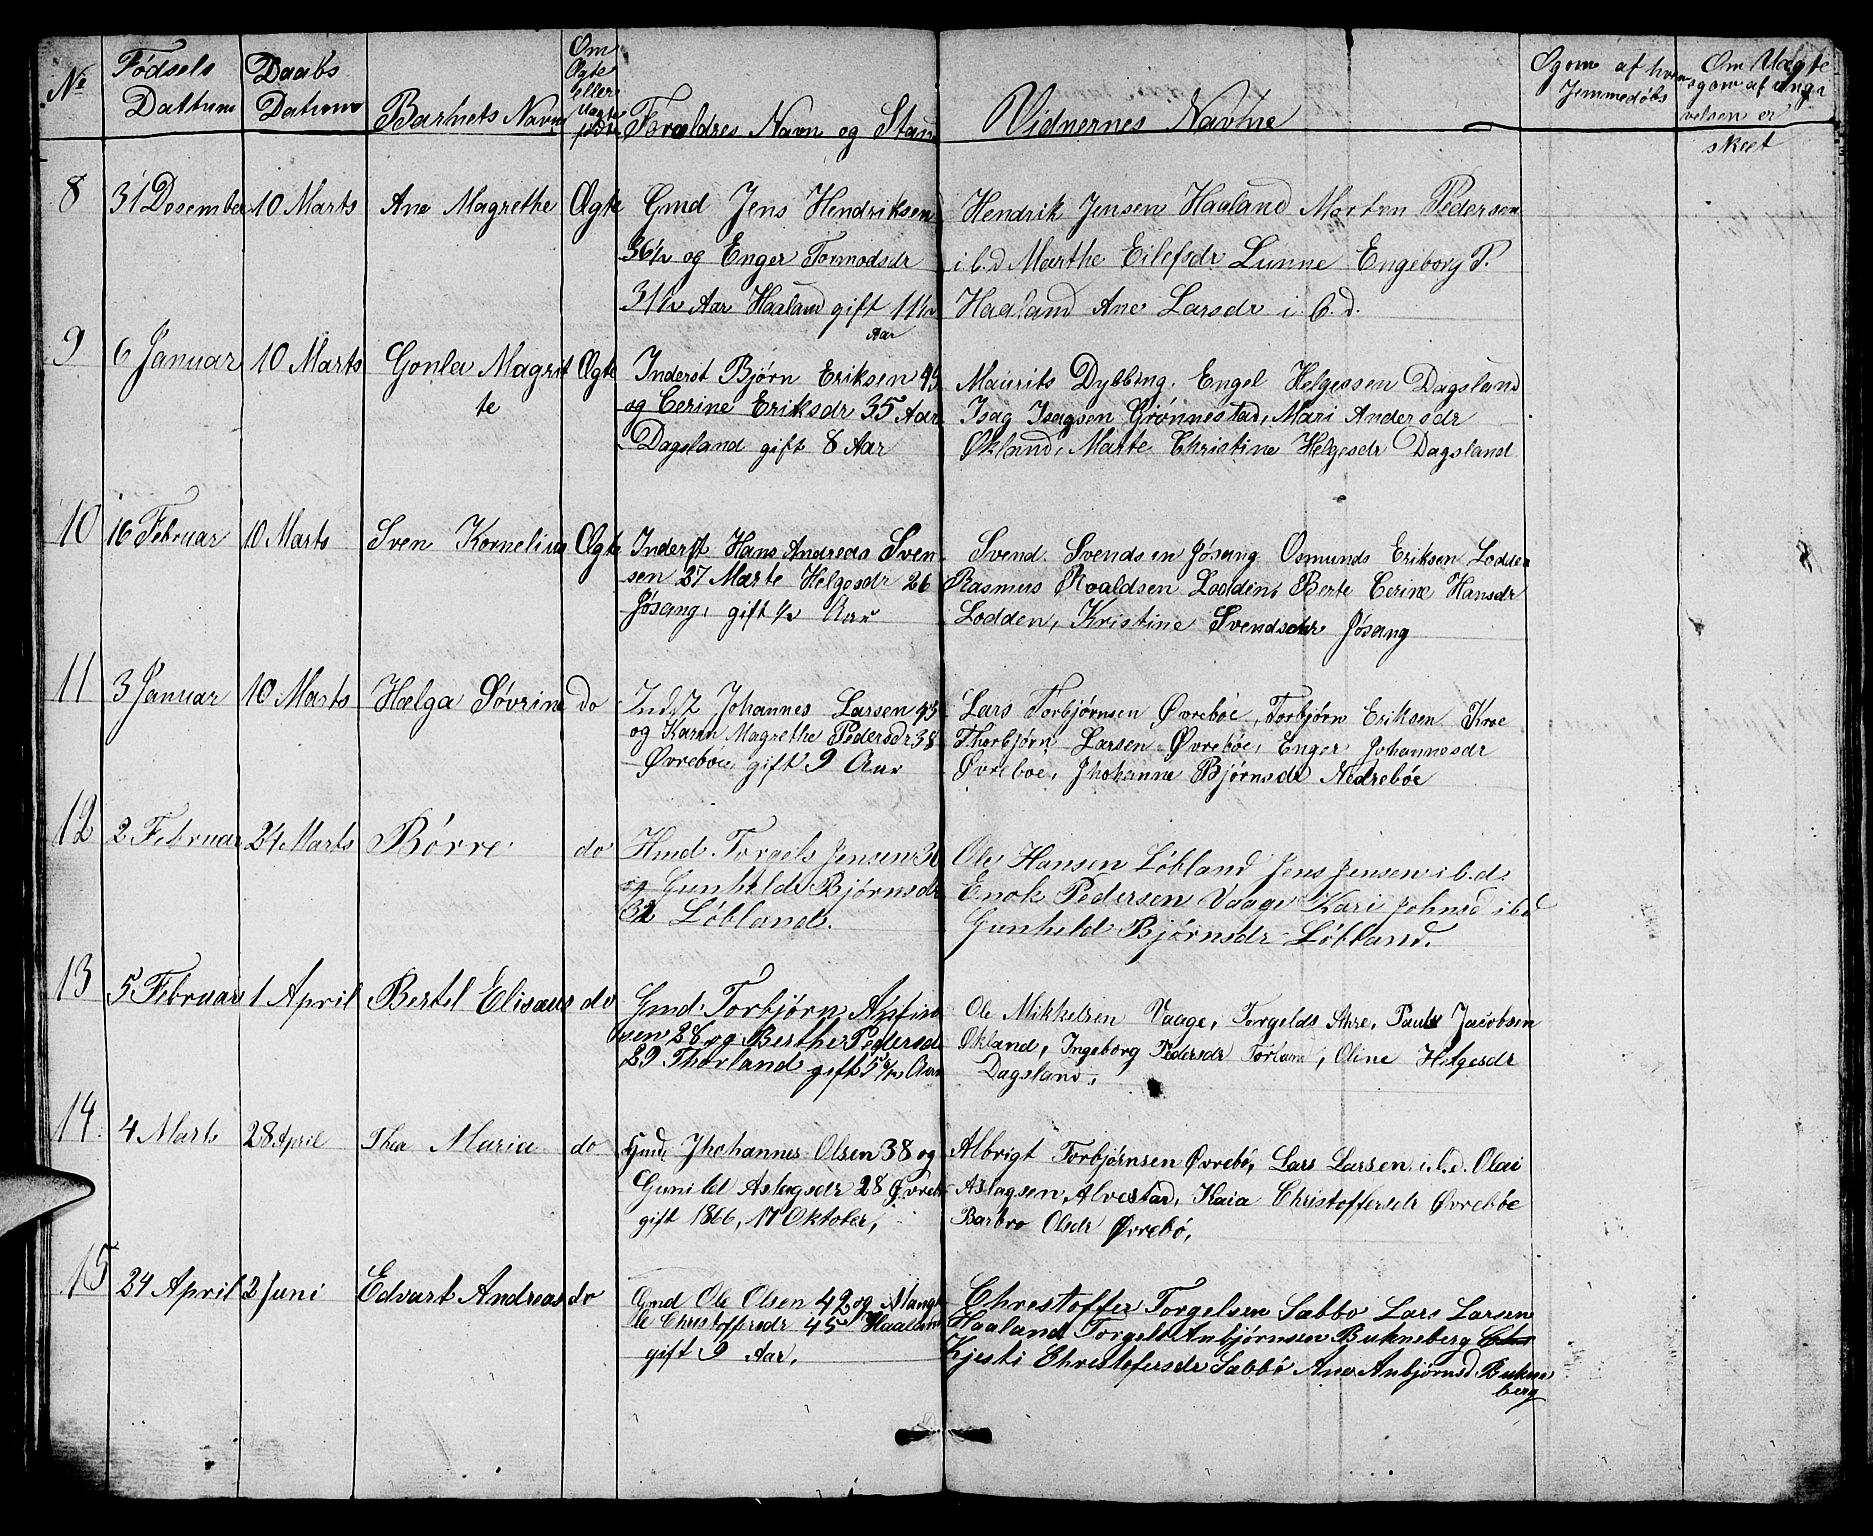 No
Fødsels
Dattum
Daabs
Datum
Barnets Navn
Om
Ægte
Eller
Uægte
født
Forældres Navn og Stan
Vidnernes Navne
Ogom af hvem
Jemmedøbt
Om Uægte
ogom af angi
velsen er
skeet
8 31 Desember 10 Marts Ane Magrethe Ægte Gmd Jens Hendriksen
36½ og Enger Tormodsdr
31½ Aar Haaland gift 11½
Aar
Hendrik Jensen Haaland Morten Pedersen
i.b.d Marthe Eilefsdr Lunne Engeborg P.
Haaland Ane Larsdr i.b.d.
9 6 Januar 10 Marts Gonla Magret
te
Ægte Inderst Bjørn Eriksen 45
og Cerine Eriksdr 35 Aar
Dagsland gift 8 Aar
Maurits Dybbing, Engel Helgessen Dagsland
Isag Isagsen Grønnestad, Mari Andersdr
Økland, Marte Christine Helgesdr Dagsland
10 16 Februar 10 Marts Sven Kornelius Ægte Inderst Hans Andreas Sven
sen 27 Marte Helgesdr 26
Jøsang, gift ½ Aar
Svend Svendsen Jøsang Osmunds Eriksen Lodden
Rasmus Roaldsen Lodden, Berte Cerine Hansdr
Lodden, Kristine Svendsdr Jøsang
11 3 Januar 10 Marts Hælga Søvrine do Johannes Larsen 45
og Karen Magrethe Pedersdr 38
Øvrebøe gift 9 Aar
Lars Torbjørnsen Øvrebøe, Torbjørn Eriksen Kroe
Thorbjørn Larsen Øvrebøe, Enger Johannesdr
Øvreboe, Jhohanne Bjørnsdr Nedrebøe
12 2 Februar 24 Marts Børre do Hmd Torgels Jensen 30
og Gunheld Bjørnsdr
32 Løbland.
Ole Hansen Løbland Jens Jensen i.b.d.
Enok Pedersen Vaage Kari Johnsd i.b.d
Gunheld Bjørnsdr Løbland.
13 5 Februar 1 April Bertel Elisæus do Gmd Torbjørn Anfin
sen 28 og Berthe Pedersd
29 Thorland gift 5½ Aar
Ole Mikkelsen Vaage, Torgelds Ahre, Paul Jacobsen
Økland, Ingeborg Pedersdr Torland, Oline Helgesdr
Dagsland,
14. 4 Marts 28 April Thea Maria do Hmd, Jhohannes Olsen 38 og
Gunild Aslagsdr 28 Øvreb
gift 1866, 17 Oktober,
Albrigt Torbjørnsen Øvrebø, Lars Larsen i.b.d. Olai
Aslagsen Alvestad, Kaia Christoffersdr Øvrebøe
Barbro Olsdr Øvrebø,
15 24 April 2 Juni Edvart Andreas do Gmd Ole Olsen 42 og Mang
le Christoffersdr 45 Haaland
gift 9 Aar,
Chrestoffer Torgelsen Sabbo Lars Larsen
Haaland Torgels Anbjørnsen Bukneberg
Kjesti Chrestofersdr Sabbø Ane Anbjørnsd Bukne
berg